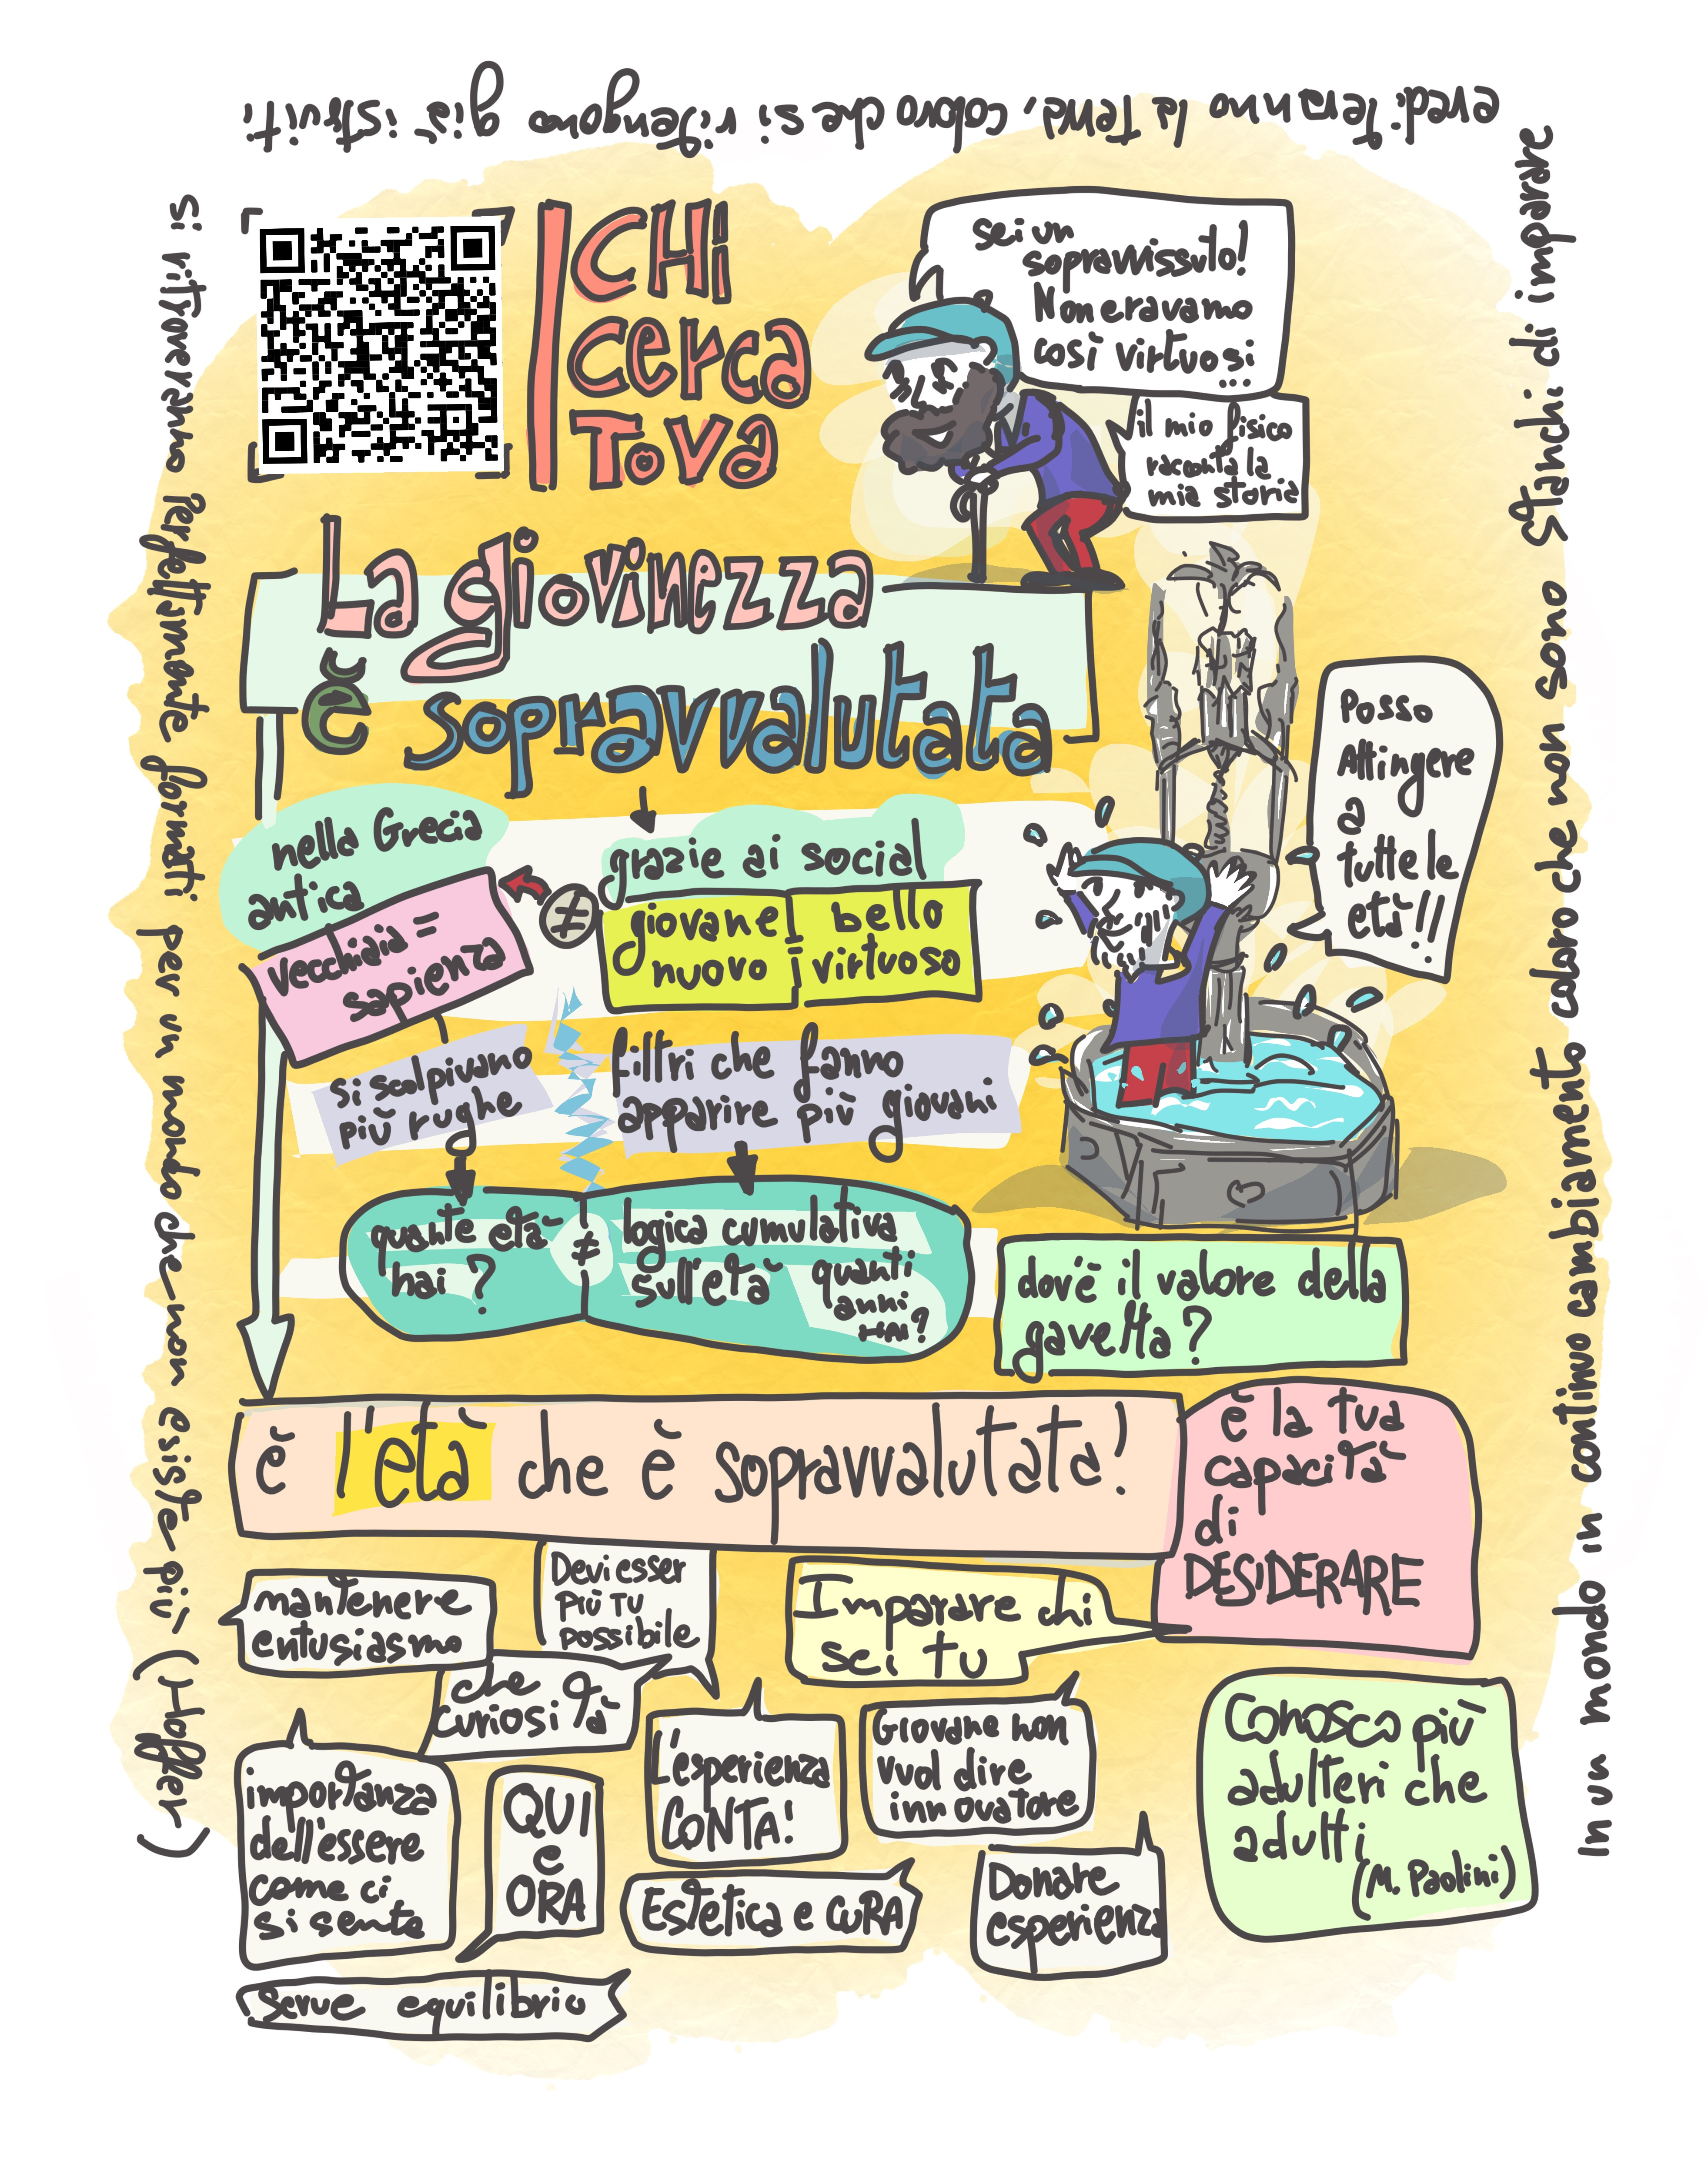 In un mondo in continuo cambiamento coloro che non sono stanchi di imparare
erediteranno la terra, coloro che si ritengono già istruiti
si ritroveranno perfettamente formati per un mondo che non esiste più (Hoffer)
CHI
cerca
Tova
sei un
sopravvissuto!
Non eravamo
così virtuosi
...
il mio fisico
racconta la
mia storia
La giovinezza
è sopravvalutata
nella Grecia
antica
vecchiaia =
sapienza
≠
grazie ai social
giovane bello
nuovo virtuoso
Posso
Attingere
a
tutte le
età!!
si scolpivano
più rughe
filtri che fanno
apparire più giovani
quante età
hai?
≠
logica cumulativa
sull'età quanti
anni
HAI?
dov'è il valore della
gavetta?
è l'età che è sopravvalutata!
è la tua
capacità
di
DESIDERARE
mantenere
entusiasmo
Devi esser
più tu
possibile
Imparare chi
sei tu
che
curiosità
importanza
dell'essere
come ci
si sente
QUI
e
ORA
L'esperienza
CONTA!
Giovane non
vuol dire
innovatore
Conosco più
adulteri che
adulti
(M. Paolini)
Estetica e CURA
Donare
esperienza
serve equilibrio